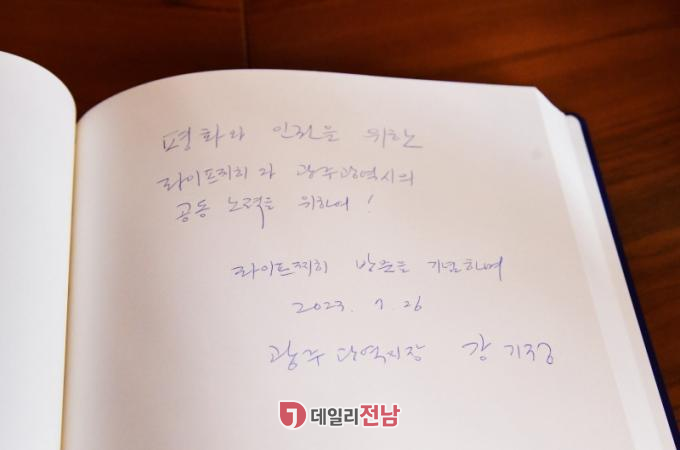 평화와 인권을 위하는
라이프찌히와 광주광역시의
공동 노력을 위하여!
라이프찌히 방문을 기념하며
2023. 7. 26
광주광역시장 강기정
데일리전남